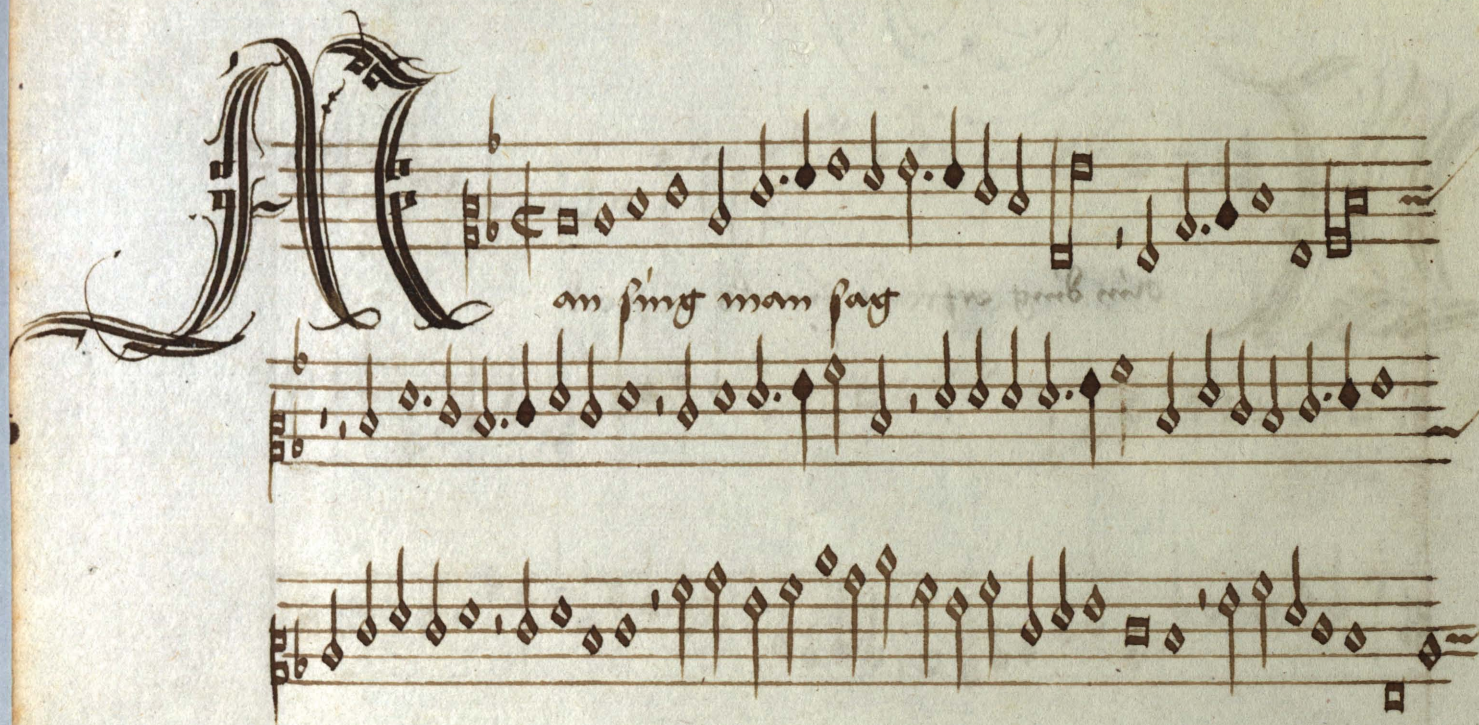 Man sing man sag